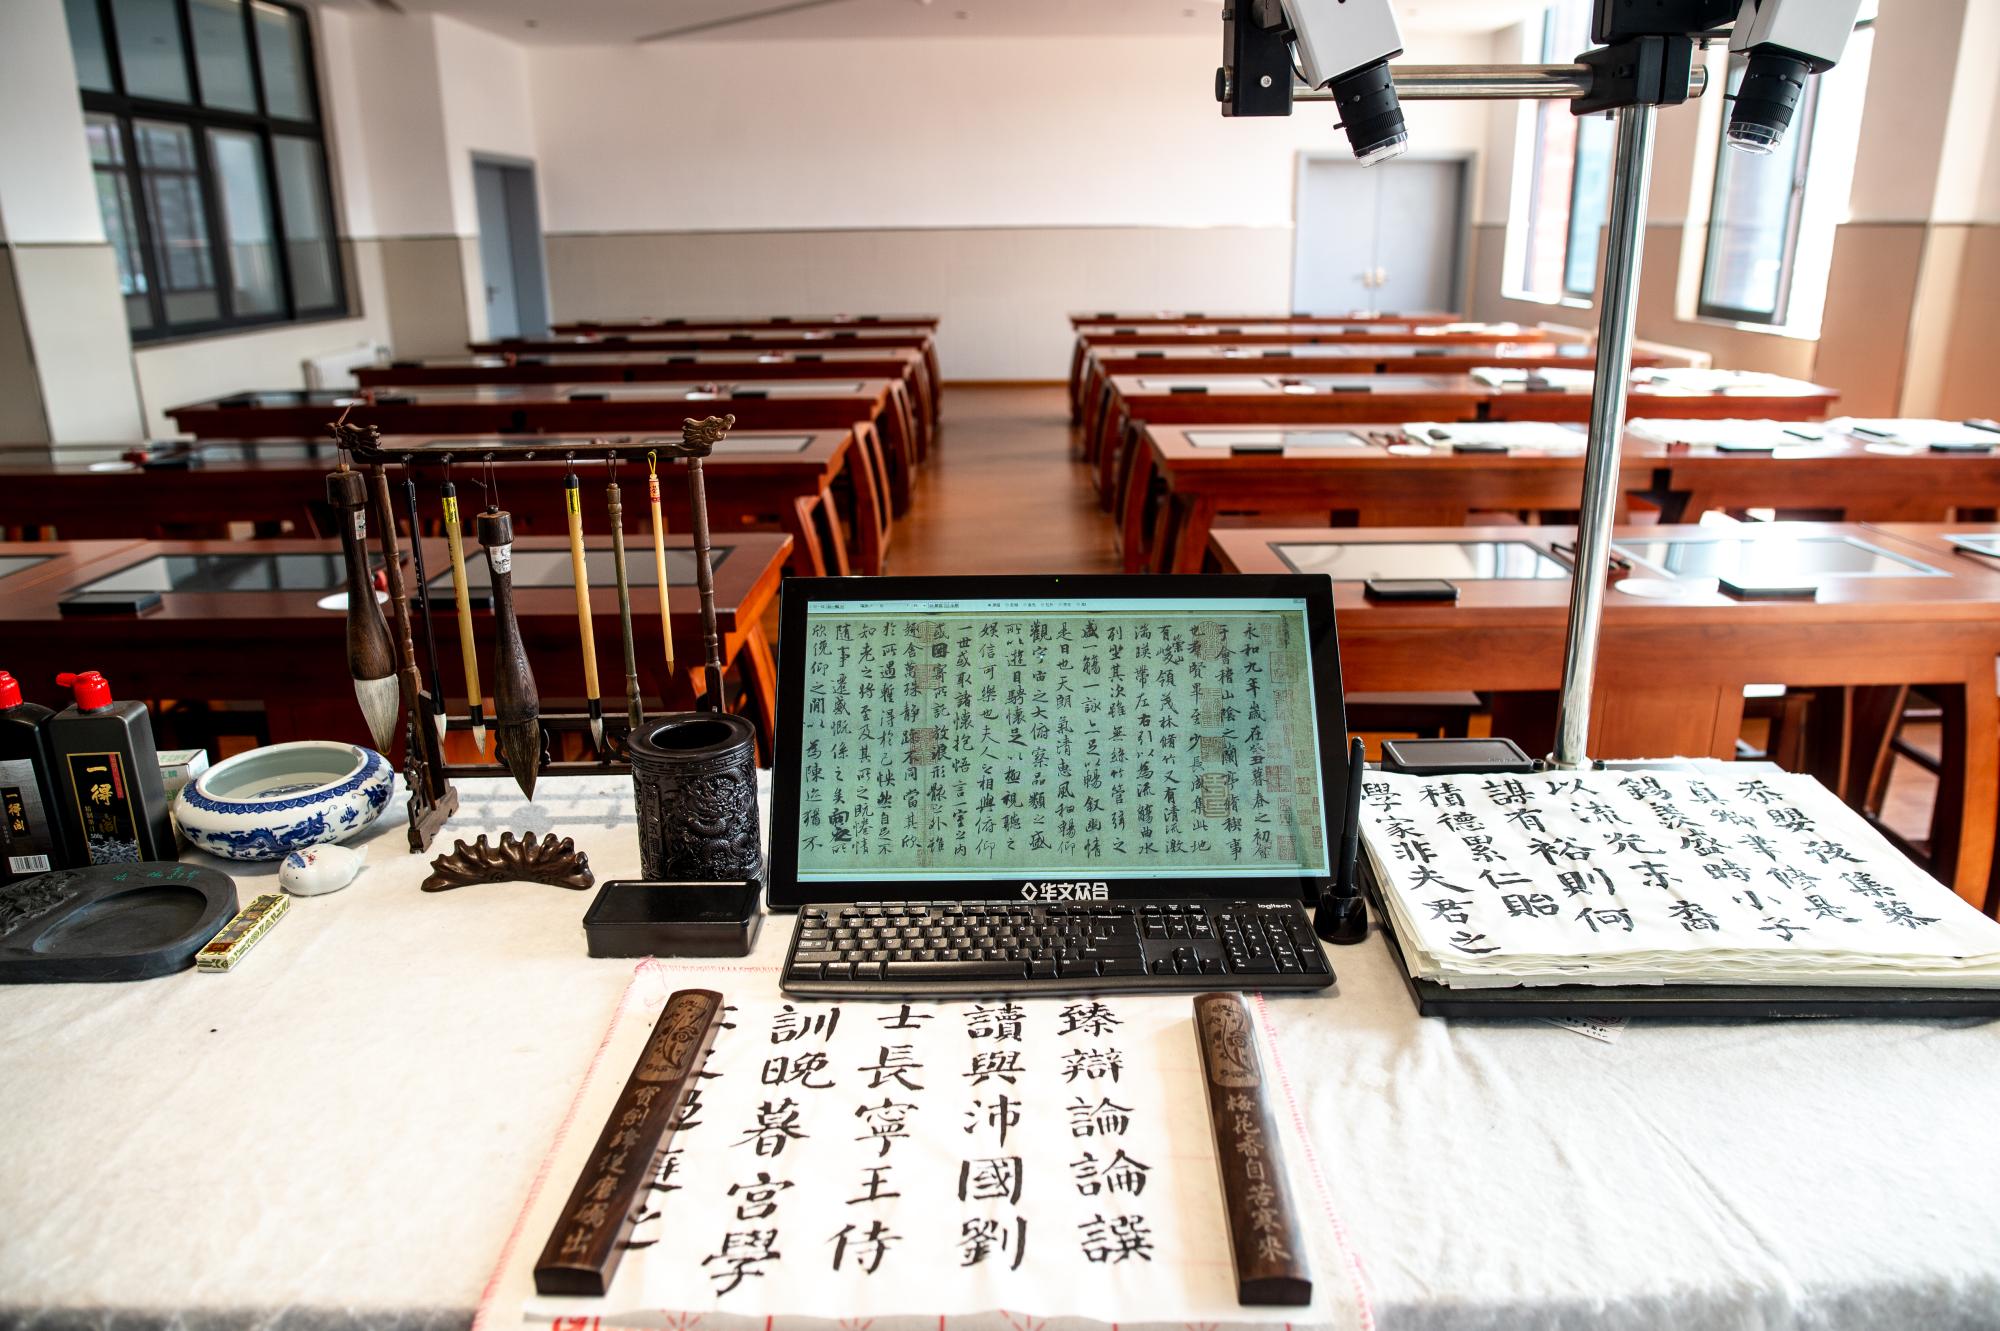 永和九年歲在癸丑暮春之初會
于會稽山陰之蘭亭脩稧事
也羣賢畢至少長咸集此地
有崇山峻領茂林脩竹又有清流激
湍暎帶左右引以為流觴曲水
列坐其次雖無絲竹管弦之
盛一觴一詠亦足以暢敘幽情
是日也天朗氣清惠風和暢仰
觀宇宙之大俯察品類之盛
所以遊目騁懷足以極視聽之
娛信可樂也夫人之相與俯仰
一世或取諸懷抱悟言一室之內
或因寄所託放浪形骸之外雖
趣舍萬殊靜躁不同當其欣
於所遇暫得於己怏然自足不
知老之將至及其所之既惓情
隨事遷感慨係之矣向之所
欣俛仰之閒以為陳迹猶不
华文众合
logitech
一得阁
一得阁
學家非夫君之
積德累仁貽
謀有裕則何
以流光末裔
錫羨盛時小子
真卿聿修是
忝嬰孩集蓼
寶劍鋒從磨礪出
訓晚暮宮學
士長寧王侍
讀與沛國劉
臻辯論論譔
梅花香自苦寒來